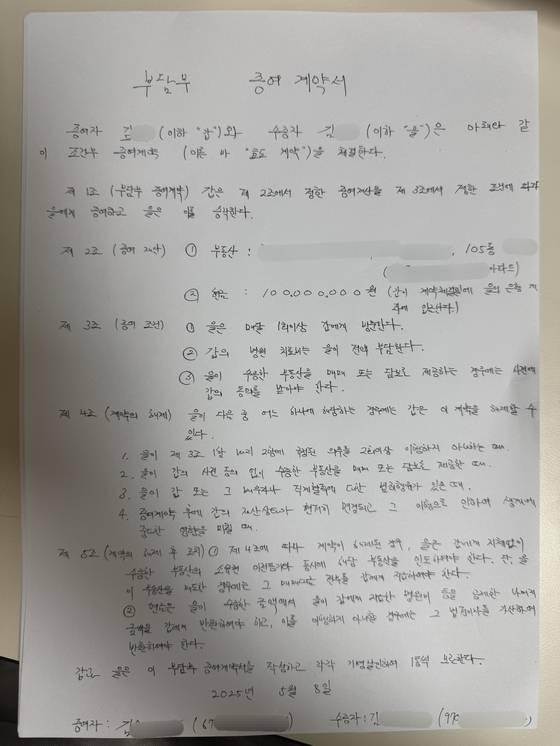 부담부 증여 계약서
증여자 김 (이하 "갑")와 수증자 김 (이하 "을")은 아래와 같
이 조건부 증여계약 (이른 바 "효도 계약")을 체결한다.
제 1조 (부담부 증여계약) 갑은 제 2조에서 정한 증여재산을 제 3조에서 정한 조건에 따라
을에게 증여하고 을은 이를 승낙한다.
제 2조 (증여 재산) ① 부동산 : , 105동
( 아파트)
② 현금 : 100,000,000원 (갑이 계약체결일에 을의 은행 계
좌에 입금한다)
제 3조 (증여 조건) ① 을은 매달 1회이상 갑에게 방문한다.
② 갑의 병원 치료비는 을이 전액 부담한다.
③ 을이 수증한 부동산을 매매 또는 담보로 제공하는 경우에는 사전에
갑의 동의를 받아야 한다.
제 4조 (계약의 해제) 을이 다음 중 어느 하나에 해당하는 경우에는 갑은 이 계약을 해제할 수
있다.
1. 을이 제 3조 1항 내지 2항에 규정된 의무를 2회이상 이행하지 아니하는 때.
2. 을이 갑의 사전 동의 없이 수증한 부동산을 매매 또는 담보로 제공한 때.
3. 을이 갑 또는 그 배우자나 직계혈족에 대한 범죄행위가 있은 때.
4. 증여계약 후에 갑의 재산상태가 현저히 변경되고 그 이행으로 인하여 생계에
중대한 영향을 미칠 때.
제 5조 (계약의 해제 후 조치) ① 제 4조에 따라 계약이 해제된 경우, 을은 갑에게 지체없이
수증한 부동산의 소유권 이전등기와 동시에 해당 부동산을 인도하여야 한다. 단, 을
이 부동산을 매도한 경우에는 그 매매대금 전부를 갑에게 지급하여야 한다.
② 현금은 을이 수증한 금액에서 을이 갑에게 지급한 병원비 등을 공제한 나머지
금액을 갑에게 반환하여야 하고, 이를 이행하지 아니한 경우에는 그 법정이자를 가산하여
반환하여야 한다.
갑과 을은 이 부담부 증여계약서를 작성하고 각각 기명날인하여 1통씩 보관한다.
2025년 5월 8일
증여자 : 김 (67 ) 수증자 : 김 (97